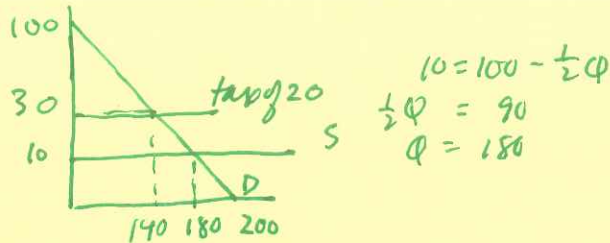 100
30
tax of 20
10
S
D
140 180 200
10 = 100 - ½Q
½Q = 90
Q = 180